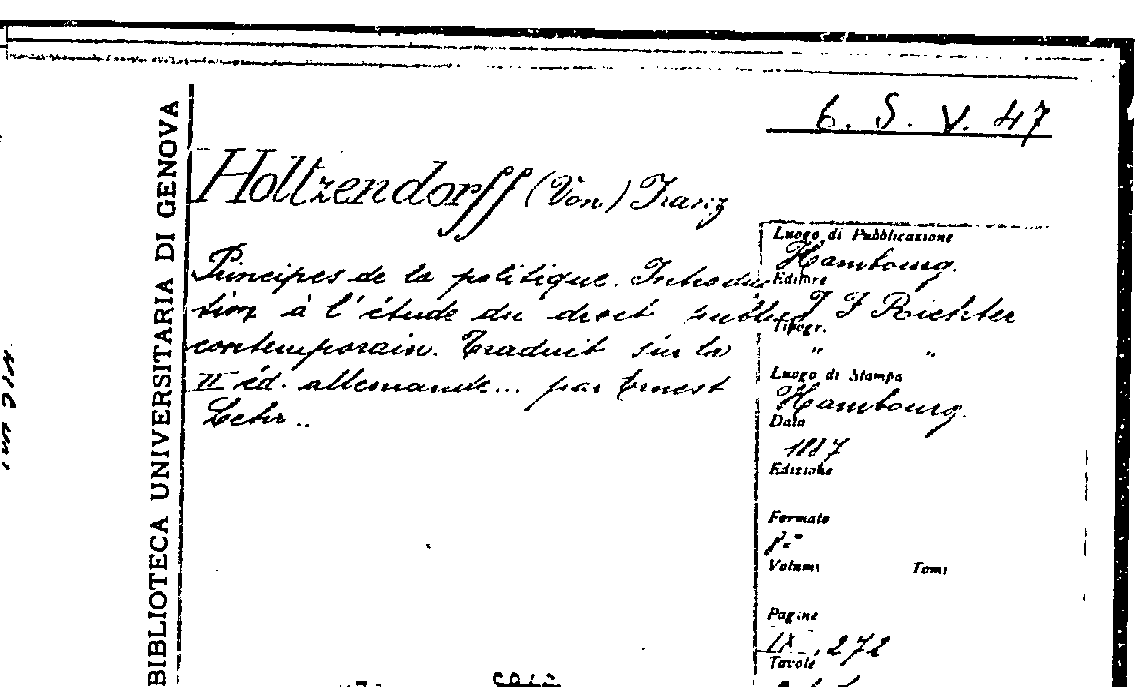 6. S. V. 47
BIBLIOTECA UNIVERSITARIA DI GENOVA
Holtzendorff (Von) Franz
Principes de la politique. Introduc
tion à l'étude du droit public
contemporain. Traduit sur la
II éd. allemande... par Ernest
Lehr..
Luogo di Pubblicazione
Hambourg.
Editore
J F Richter
Tipogr.
" "
Luogo di Stampa
Hambourg.
Data
1887
Edizione
Formato
8.°
Volumi Tomi
Pagine
IX, 272
Tavole